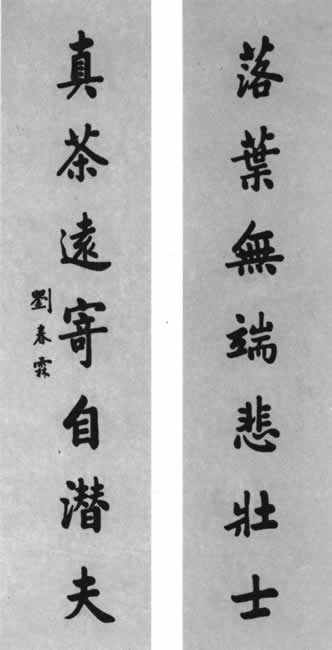 落葉無端悲壯士
真茶遠寄自潛夫
劉春霖